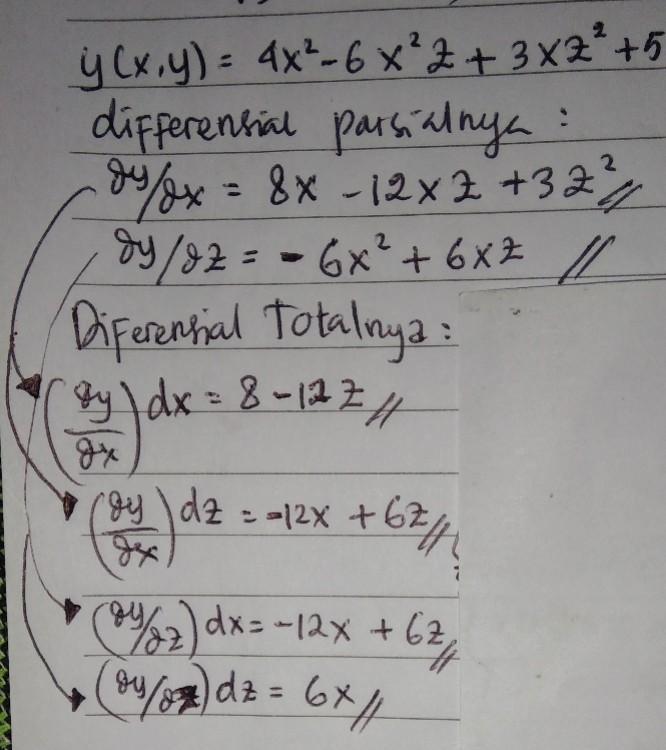 y(x,y) = 4x² - 6x²z + 3xz² + 5
differensial parsialnya :
∂y/∂x = 8x - 12xz + 3z² //
∂y/∂z = - 6x² + 6xz //
Diferensial Totalnya :
(∂y/∂x) dx = 8 - 12z //
(∂y/∂x) dz = -12x + 6z //
(∂y/∂z) dx = -12x + 6z //
(∂y/∂z) dz = 6x //